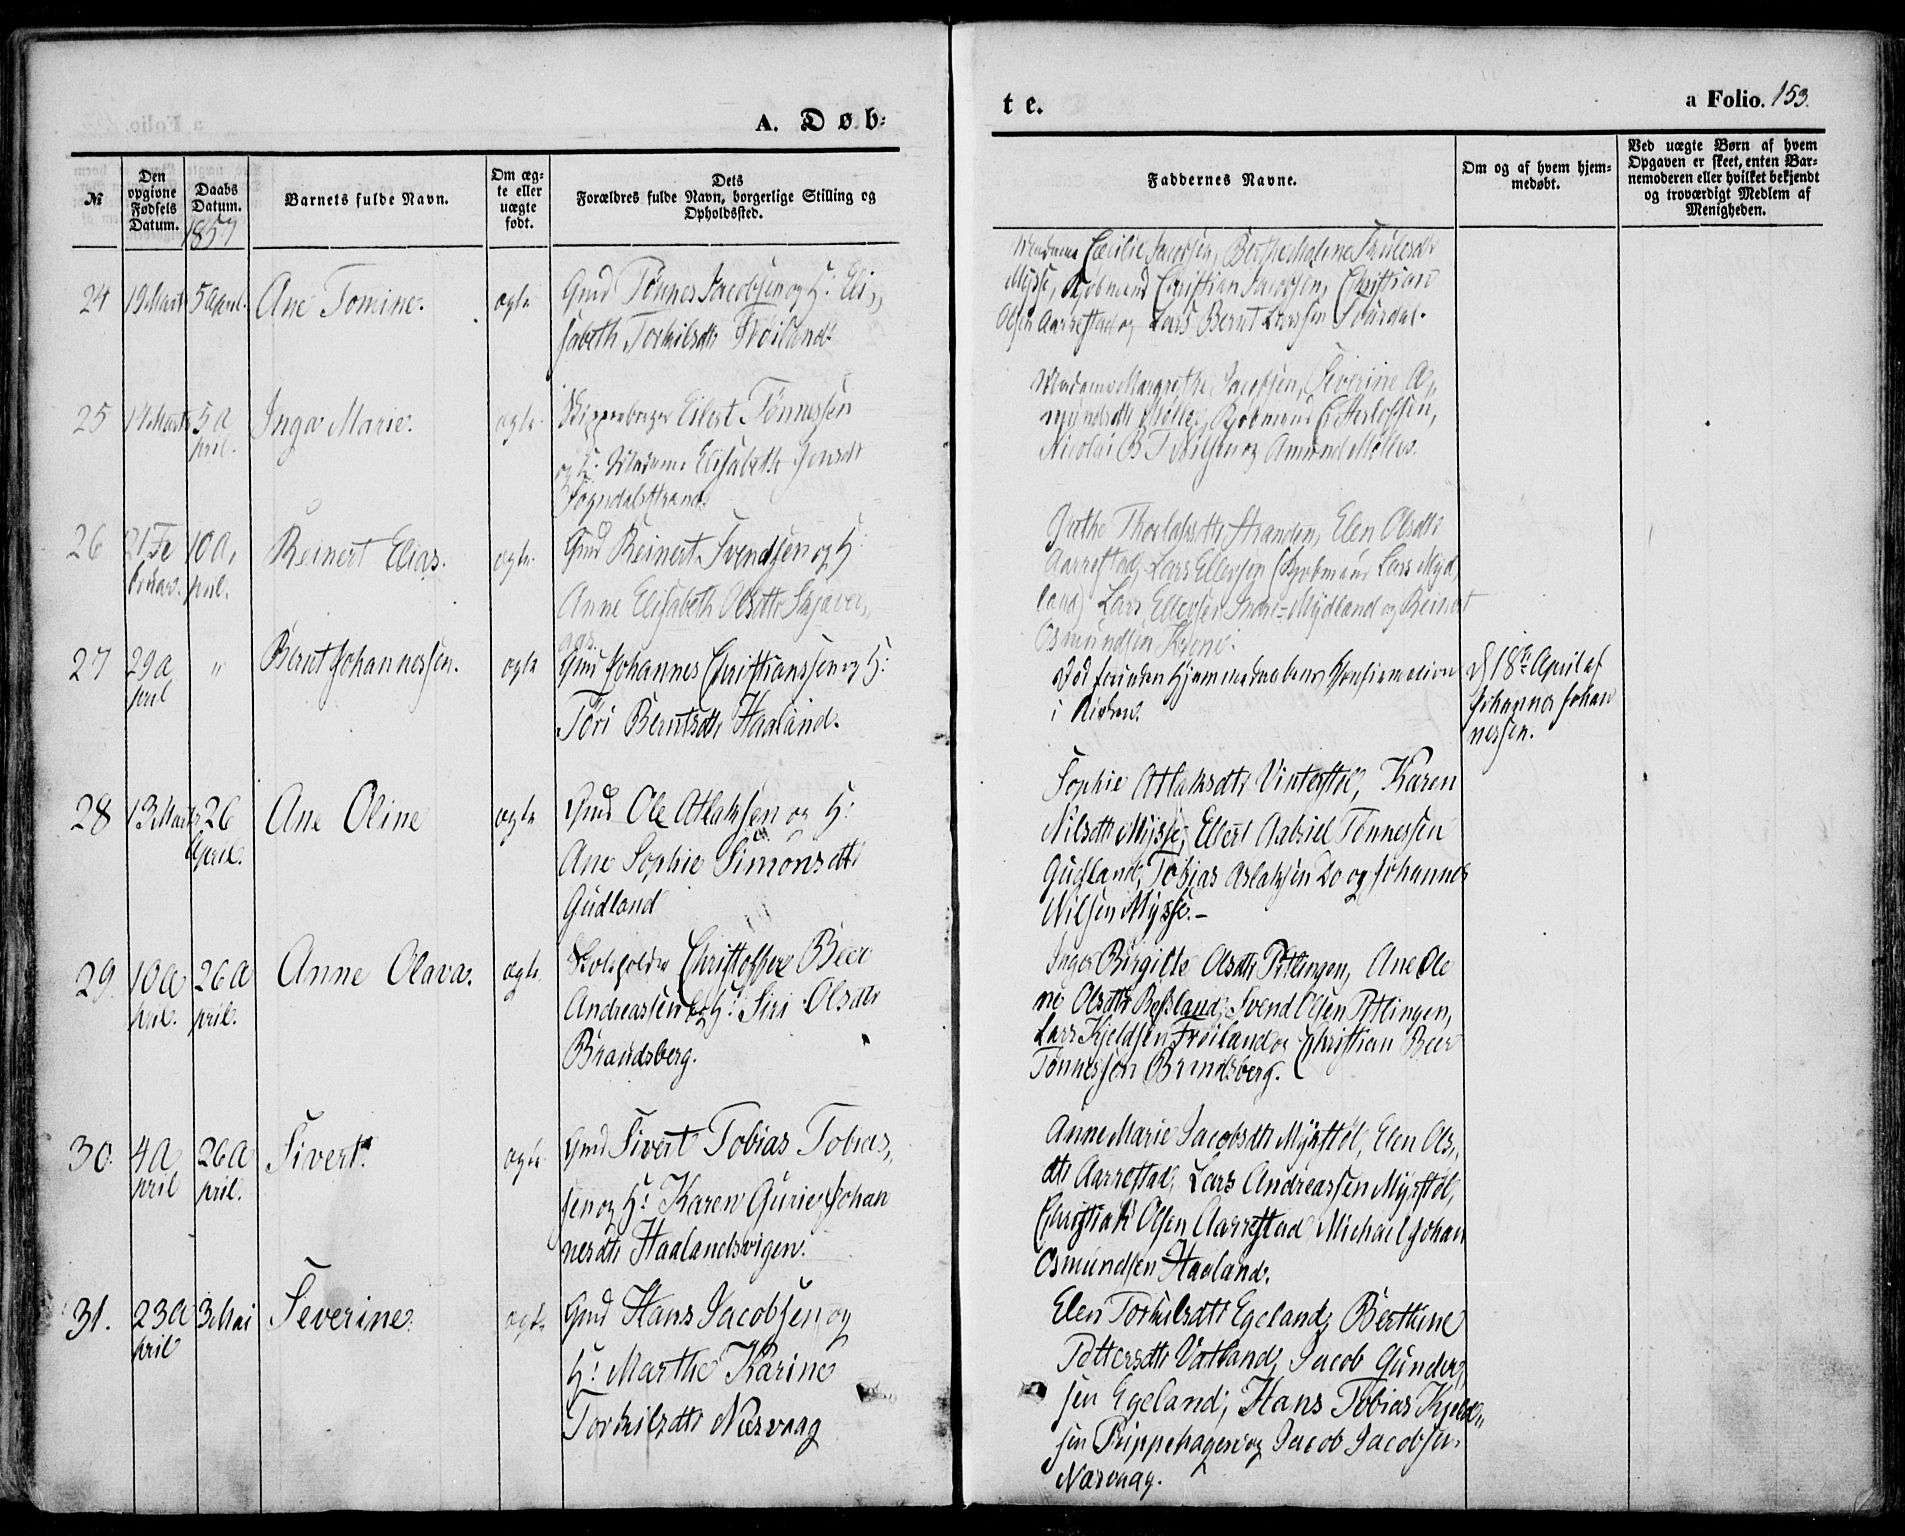 A. Døb-
te.
a Folio. 153.
№
Den opgivne Fødsels Datum.
Daabs Datum.
1857
Barnets fulde Navn.
Om ægte eller uægte født.
Dets
Forældres fulde Navn, borgerlige Stilling og
Opholdssted.
Faddernes Navne.
Om og af hvem hjem-
medøbt.
Ved uægte Børn af hvem
Opgaven er skeet, enten Bar-
nemoderen eller hvilket bekjendt
og troværdigt Medlem af
Menigheden.
24 19 Marts 5 April. Ane Tomine. ægte
Gmd Tønnes Jacobsen og H: Eli,,
sabeth Torkilsdtr Frøiland
Madame Cecilie Jacobsen, Berthe Malene
Mysse, Kjøbmand Christian Jacobsen, Christian
Olsen Aarrestad og Lars Bernt Larssen
25 14 Marts 5 A
pril. Inga Marie. ægte
Skipperborger Eilert Tønnessen
og H: Madame Elisabeth Jensdtr
Sogndalsstrand.
Madame Margrethe Jacobsen, Severine A,,
mundsdtr Møller, Kjøbmand
Nicolai B T Nilsen og Amund Møller.
26 21 Fe
bruar. 10 A,
pril. Reinert Elias. ægte
Gmd Reinert Svendsen og H
Anne Elisabeth Olsdtr
Grethe Stranden, Elen Olsdtr
Aarrestad, Lars Ellefsen (Kjøbmand Lars Myd,
land) Lars Ellefsen Indre-Mydland og Reinert
Osmundsen
27 29 A
pril " Bernt Johannessen. ægte
Gmd Johannes Christianssen og H:
Tori Berntsdtr Haaland.
Død forinden Hjemmedaabens Confirmation
i Kirken.
d 18de April af
Johannes Johan
nessen.
28 13 Marts 26
April. Ane Oline ægte
Gmd Ole Atlaksen og H:
Ane Sophie Simonsdtr
Gudland
Sophie Atlaksdtr Vinterstøl, Karen
Nilsdtr Mysse, Ellert Gabriel Tønnessen
Gudland, Tobias Aslaksen Do og Johannes
Nilsen Mysse.-
29. 10 A
pril. 26 A
pril. Anne Olava. ægte.
Skoleholder Christoffer Beer
Andreassen og H: Siri Olsdtr
Brandsberg.
Inger Birgitte Olsdtr Ane Ole
ne Olsdtr Svend Olsen
Lars Kjeldsen Frøiland og Christian Beer
Tønnessen Brandsberg.
30. 4 A
pril 26 A
pril. Sivert. ægte
Gmd Sivert Tobias Tobias,,
sen og H: Karen Gurie Johan
nesdtr Haalandsvigen.
Anne Marie Jacobsdtr Myrstøl, Elen Ols,,
dtr Aarrestad, Lars Andreassen Myrstøl,
Christian Olsen Aarrestad Michael Johan
Osmundsen Haaland.
31. 23 A
pril 3 Mai Severine. ægte
Gmd Hans Jacobsen og
H: Marthe Karine
Torkilsdtr Nesvaag
Elen Torkilsdtr Egeland, Berthine
Pettersdtr Vatland, Jacob Gunder,
sen Egeland, Hans Tobias Kjeld,,
sen Rippehagen og Jacob Jacobsen
Næsvaag.